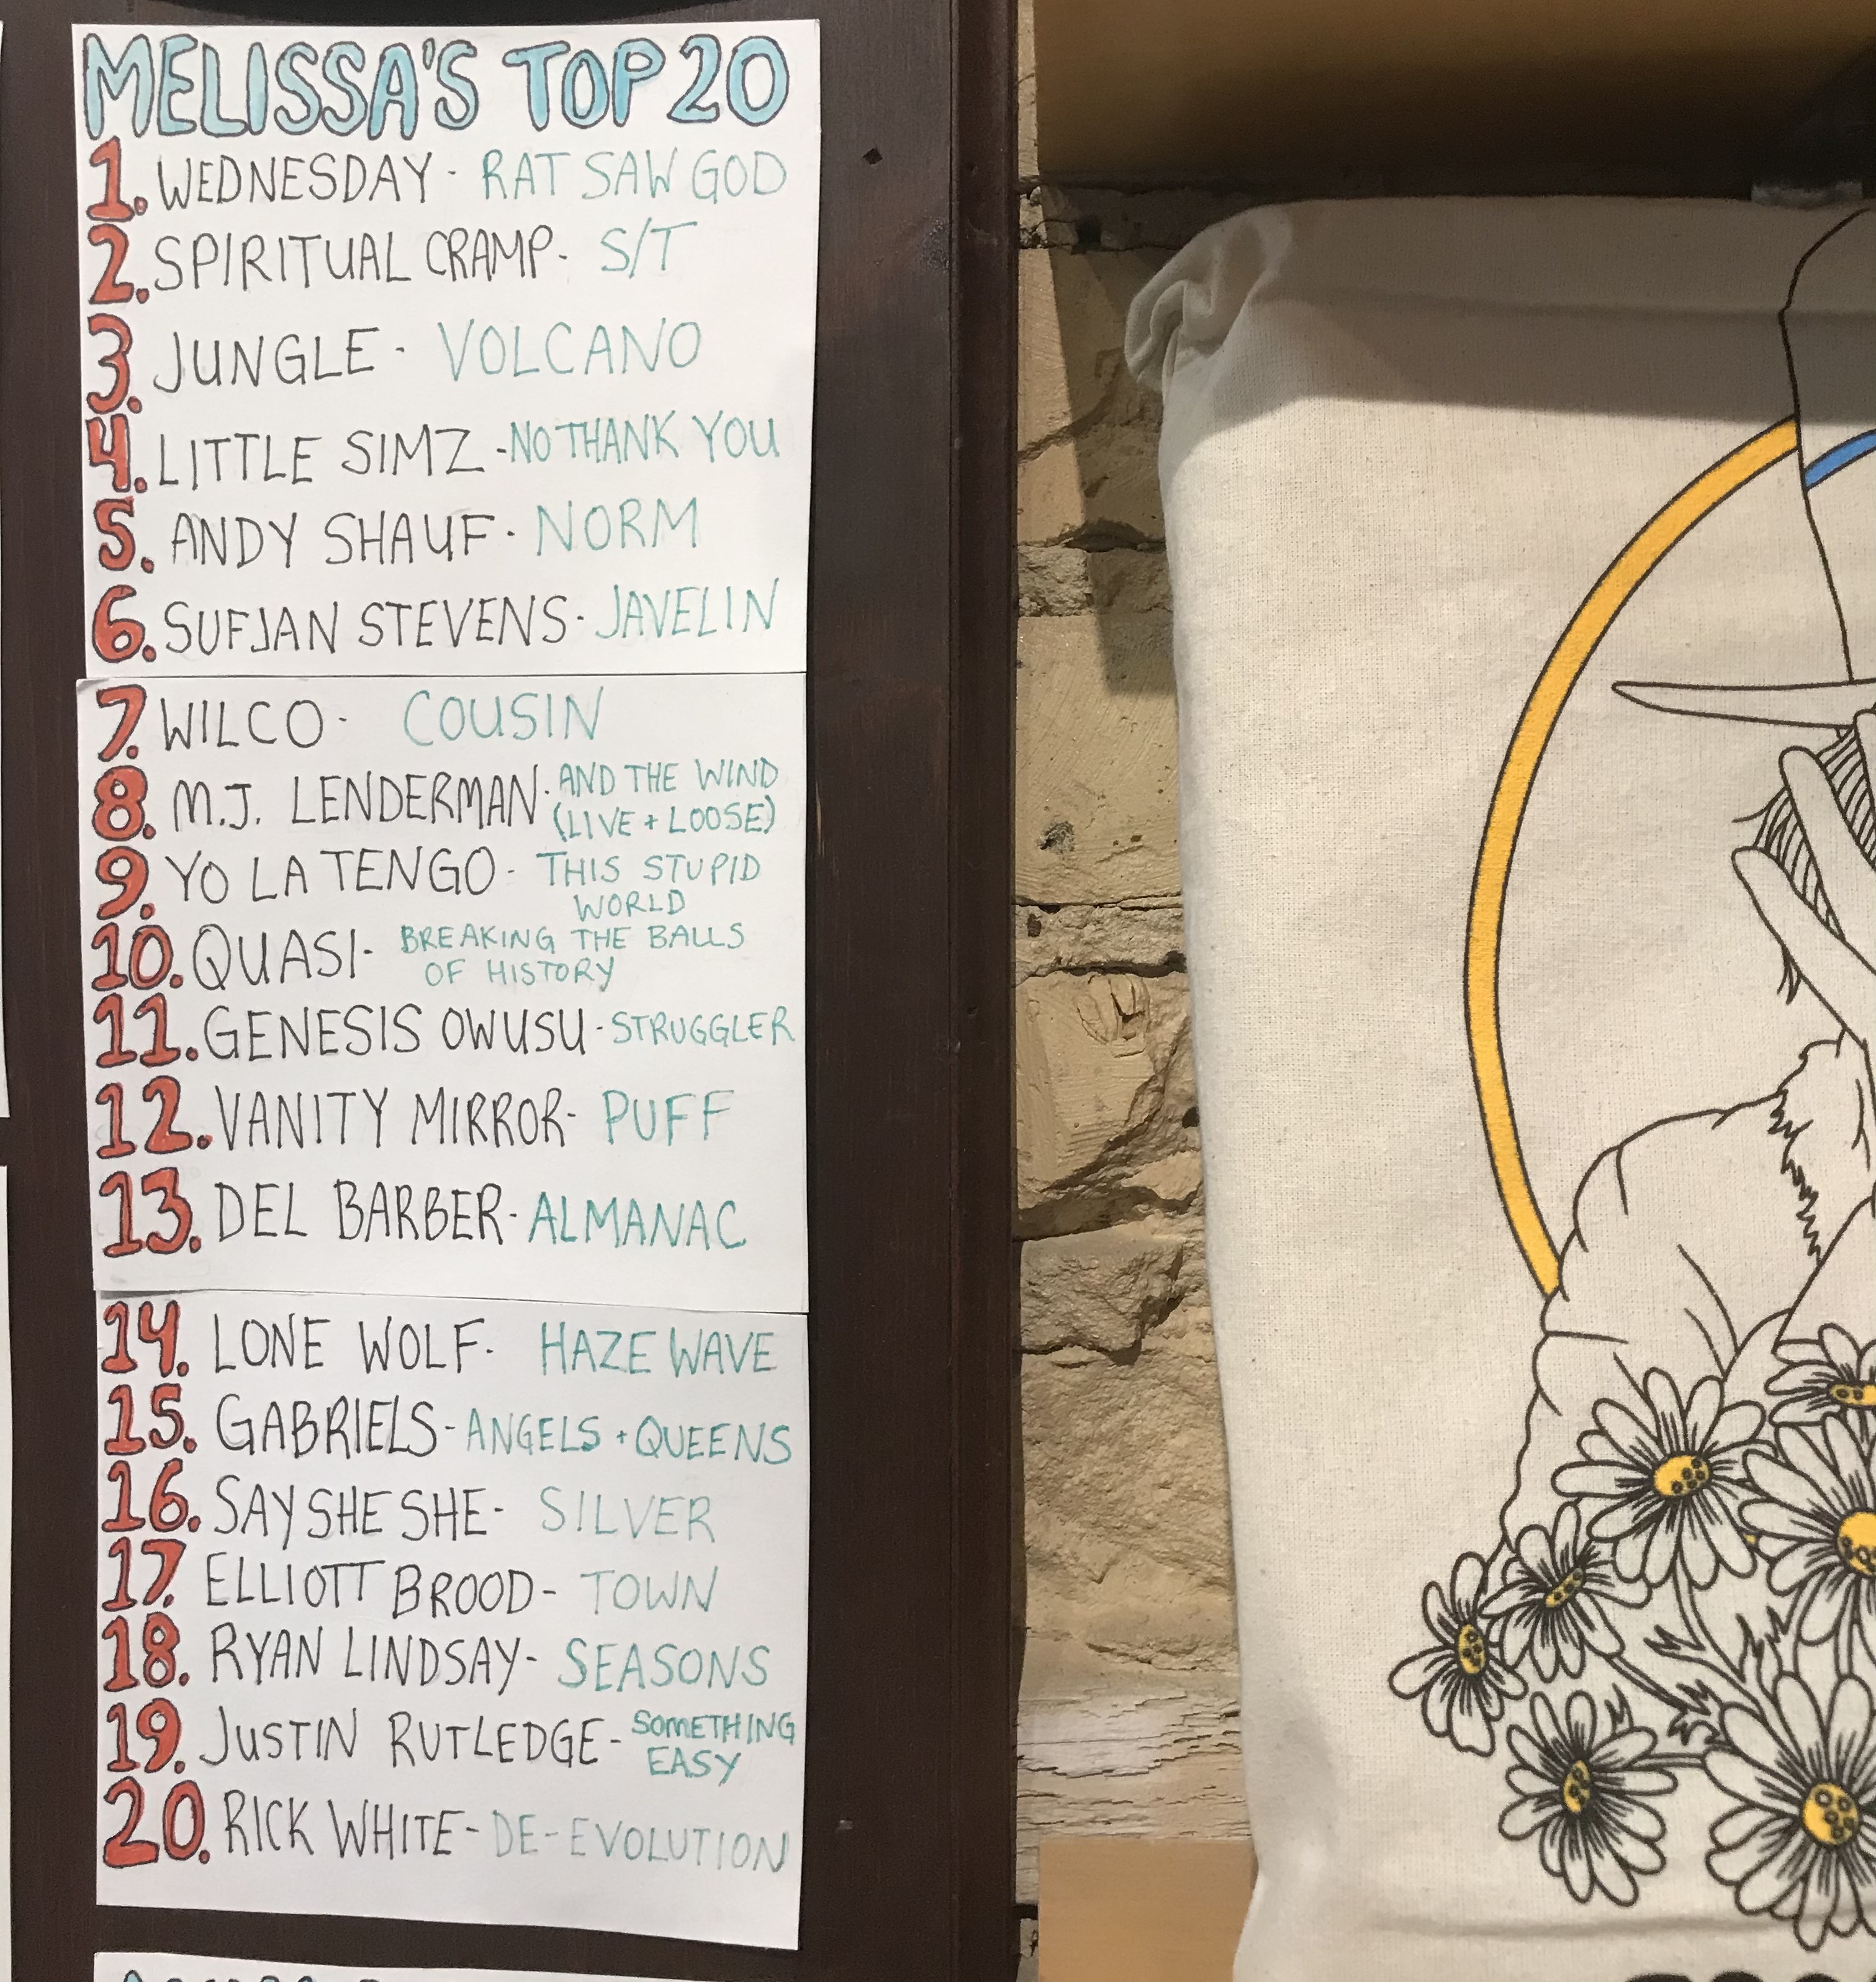 MELISSA'S TOP 20
1. WEDNESDAY - RAT SAW GOD
2. SPIRITUAL CRAMP - S/T
3. JUNGLE - VOLCANO
4. LITTLE SIMZ - NO THANK YOU
5. ANDY SHAUF - NORM
6. SUFJAN STEVENS - JAVELIN
7. WILCO - COUSIN
8. M.J. LENDERMAN - AND THE WIND
(LIVE + LOOSE)
9. YO LA TENGO - THIS STUPID
WORLD
10. QUASI - BREAKING THE BALLS
OF HISTORY
11. GENESIS OWUSU - STRUGGLER
12. VANITY MIRROR - PUFF
13. DEL BARBER - ALMANAC
14. LONE WOLF - HAZE WAVE
15. GABRIELS - ANGELS + QUEENS
16. SAY SHE SHE - SILVER
17. ELLIOTT BROOD - TOWN
18. RYAN LINDSAY - SEASONS
19. JUSTIN RUTLEDGE - SOMETHING
EASY
20. RICK WHITE - DE-EVOLUTION